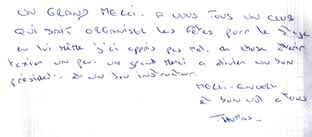 UN GRAND MERCI. A VOUS TOUS UN CLUB
QUI SAIT ORGANISER les fêtes pour le
en lui même j'ai appris pas mal. de chose
un peu. un grand merci a olivier un bon
président. et un bon instructeur.
MERCI. ENCORE
et bon vol a tous
THOMAS.